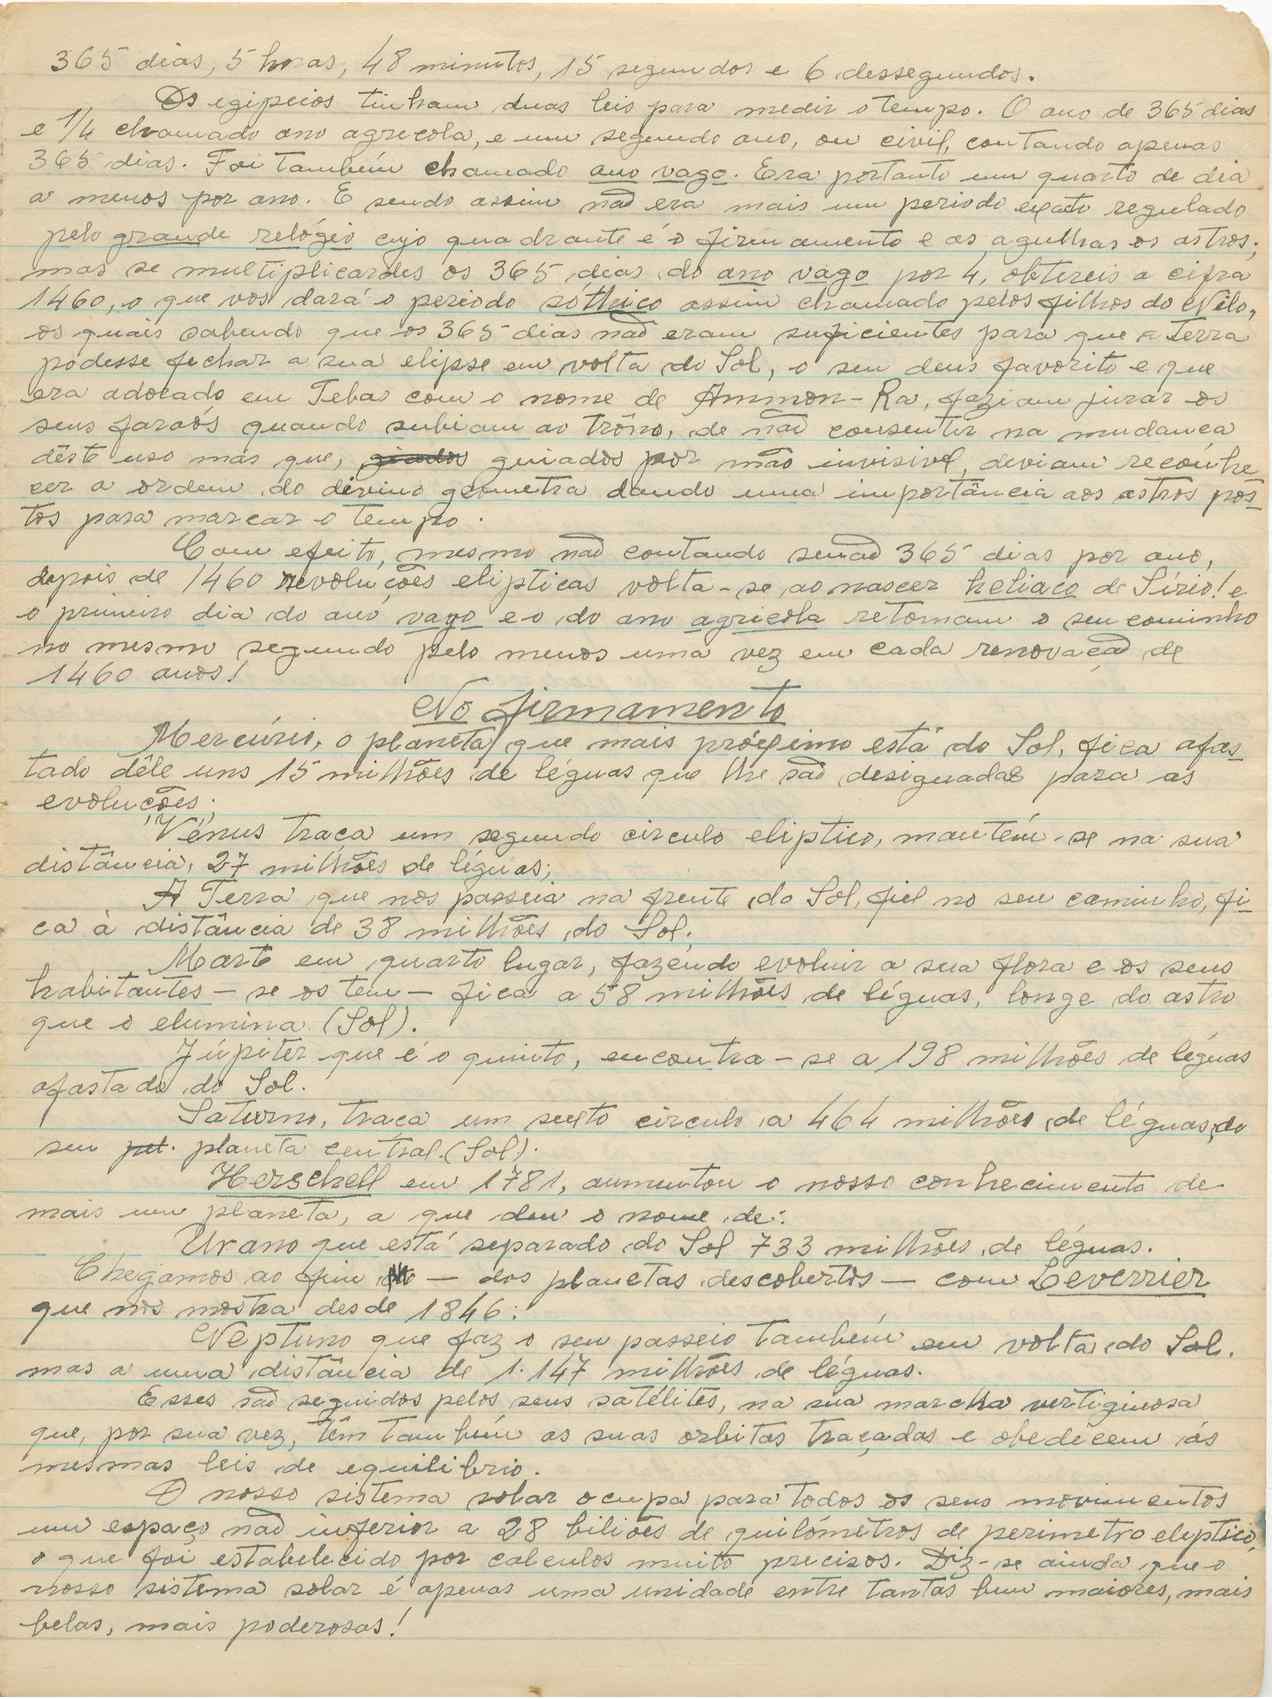 365 dias, 5 horas, 48 minutos, 15 segundos e 6 dessegundos.
Os egipcios tinham duas leis para medir o tempo. O ano de 365 dias
e 1/4 chamado ano agricola, e um segundo ano, ou civil, contando apenas
365 dias. Foi também chamado ano vago. Era portanto um quarto de dia
a menos por ano. E sendo assim não era mais um periodo exato regulado
pelo grande relógio cujo quadrante é o firmamento e as agulhas os astros;
mas se multiplicardes os 365 dias do ano vago por 4, obtereis a cifra
1460, o que vos dará o periodo sóthico assim chamado pelos filhos do Nilo,
os quais sabendo que os 365 dias não eram suficientes para que a terra
podesse fechar a sua elipse em volta do Sol, o seu deus favorito e que
era adorado em Tebas com o nome de Ammon-Ra, faziam jurar os
seus faraós quando subiam ao trôno, de não consentir na mudança
dêste uso mas que, guiados por mão invisivel, deviam reconhe
cer a ordem do divino geometra dando uma importância aos astros pos_
tos para marcar o tempo.
Com efeito, mesmo não contando senão 365 dias por ano,
depois de 1460 revoluções elipticas volta-se ao nascer heliaco de Sírio! e
o primeiro dia do ano vago e o do ano agricola retomam o seu caminho
no mesmo segundo pelo menos uma vez em cada renovação de
1460 anos!
No firmamento
Mercúrio, o planeta que mais próximo está do Sol, fica afas_
tado dêle uns 15 milhões de léguas que lhe são designadas para as
evoluções;
Vénus traça um segundo circulo eliptico, mantém-se na sua
distância, 27 milhões de léguas;
A Terra que nos passeia na frente do Sol, fiel no seu caminho, fi_
ca à distância de 38 milhões do Sol;
Marte em quarto lugar, fazendo evoluir a sua flora e os seus
habitantes - se os tem - fica a 58 milhões de léguas, longe do astro
que o elumina (Sol).
Júpiter que é o quinto, encontra-se a 198 milhões de léguas
afastado do Sol.
Saturno, traça um sexto circulo a 464 milhões de léguas, do
seu planeta central. (Sol).
Herschell em 1781, aumentou o nosso conhecimento de
mais um planeta, a que deu o nome de:
Urano que está separado do Sol 733 milhões de léguas.
Chegamos ao fim — dos planetas descobertos — com Leverrier
que nos mostra desde 1846:
Neptuno que faz o seu passeio também em volta do Sol.
mas a uma distância de 1.147 milhões de léguas.
Esses são seguidos pelos seus satélites, na sua marcha vertiginosa
que, por sua vez, têm também as suas orbitas traçadas e obedecem ás
mesmas leis de equilibrio.
O nosso sistema solar ocupa para todos os seus movimentos
um espaço não inferior a 28 biliões de quilómetros de perimetro eliptico,
o que foi estabelecido por calculos muito precisos. Diz-se ainda que o
nosso sistema solar é apenas uma unidade entre tantas bem maiores, mais
belas, mais poderosas!